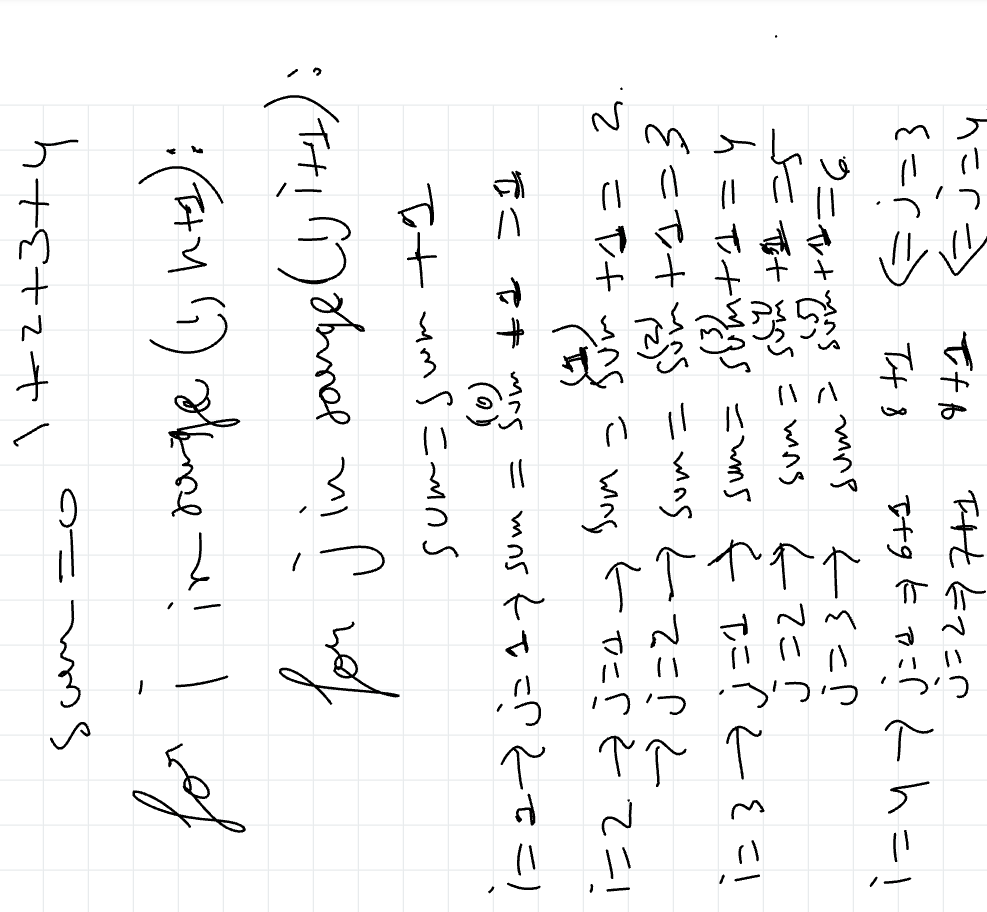 1+2+3+4
sum=0
for i in range (1, n+1):
for j in range (1, i+1):
sum= sum +1
(0)
i=1 → j=1 → sum = sum +1 =1
(1)
i=2 → j=1 → sum = sum +1 = 2
(2)
→ j=2 → sum = sum +1 = 3
(3)
i=3 → j=1 → sum= sum+1 = 4
(4)
j=2 → sum = sum+1 =5
(5)
j=3 → sum = sum+1=6
i=4 → j=1 ⇒ 6+1 8+1 ⇐ j=3
j=2 ⇒ 7+1 9+1 ⇐ j=4